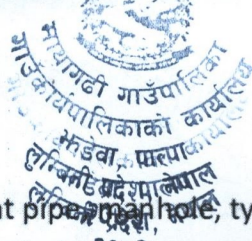 माथागढी गाउँपालिका
गाउँ कार्यपालिकाको कार्यालय
पाल्पा
लुम्बिनी प्रदेश, नेपाल
pipe manhole, ty